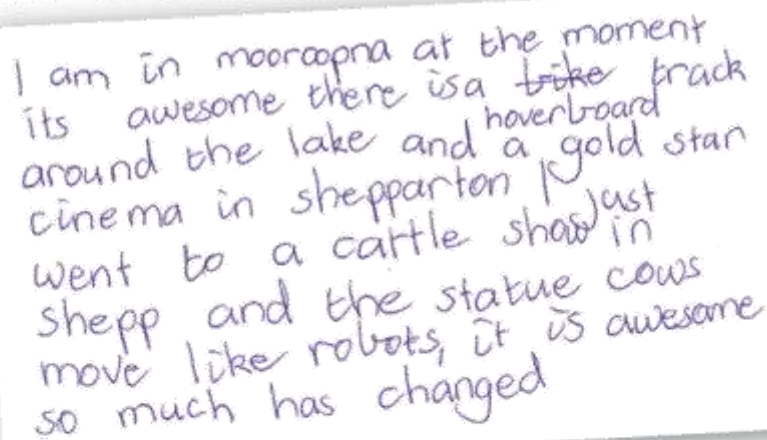 I am in mooroopna at the moment
its awesome there is a bike track
hoverboard
around the lake and a gold star
cinema in shepparton I
just
went to a cattle show in
shepp and the statue cows
move like robots, it is awesome
so much has changed